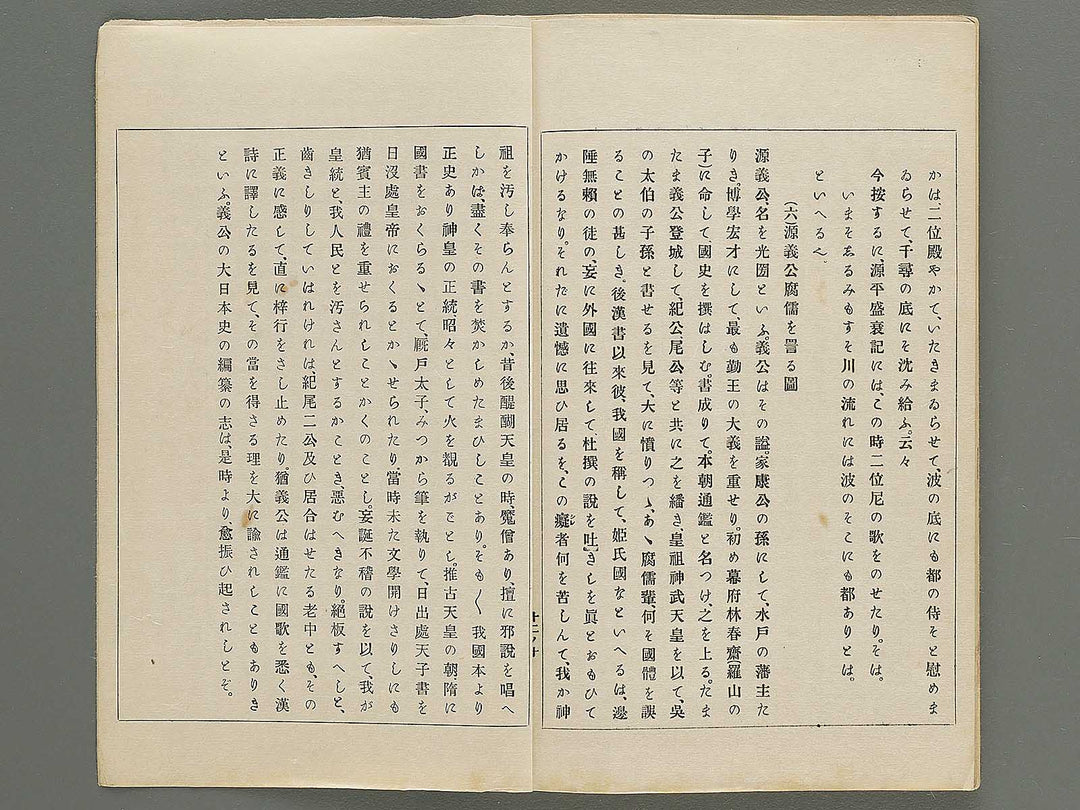 かは、二位殿やかて、いたきまゐらせて、波の底にも都の侍そと慰めま
ゐらせて、千尋の底にそ沈み給ふ。云々
今按するに、源平盛衰記には、この時二位尼の歌をのせたり。そは。
いまそゑるみもすそ川の流れには波のそこにも都ありとは。
といへる也。
(六)源義公腐儒を詈る圖
源義公、名を光圀といふ。義公はその謚。家康公の孫にして、水戸の藩主た
りき。博學宏才にして、最も勤王の大義を重せり。初め幕府林春齋(羅山の
子)に命して國史を撰はしむ。書成りて。本朝通鑑と名つけ、之を上る。たま
たま義公登城して、紀公尾公等と共に之を繙き、皇祖神武天皇を以て、吳
の太伯の子孫と書せるを見て、大に憤りつゝ、あゝ腐儒輩、何そ國體を誤
ることの甚しき。後漢書以來彼、我國を稱して、姫氏國なといへるは、邊
陲無賴の徒の、妄に外國に往來して杜撰の說を吐きしを眞とおもひて
かけるなり。それたに遺憾に思ひ居るを、この癡者何を苦しんて、我か神
十二ノ十
祖を汚し奉らんとするか、昔後醍醐天皇の時、魔僧あり、擅に邪說を唱へ
しかは、盡くその書を焚かしめたまひしことあり。そも〱我國本より
正史あり神皇の正統、昭々として火を觀るがごとし。推古天皇の朝、隋に
國書をおくらるゝとて、厩戸太子、みつから筆を執りて、日出處天子書を
日沒處皇帝におくるとかゝせられたり、當時未た文學開けさりしにも
猶賓主の禮を重せられしことかくのことし。妄誕不稽の說を以て、我が
皇統と、我人民とを汚さんとするかことき、惡むへきなり。絕板すへしと、
齒きしりしていはれけれは、紀尾二公及ひ居合はせたる老中とも、その
正義に感して、直に梓行をさし止めたり。猶義公は通鑑に國歌を悉く漢
詩に譯したるを見て、その當を得さる理を大に諭されしこともありき
といふ。義公の大日本史の編纂の志は是時より、愈振ひ起されしとそ。